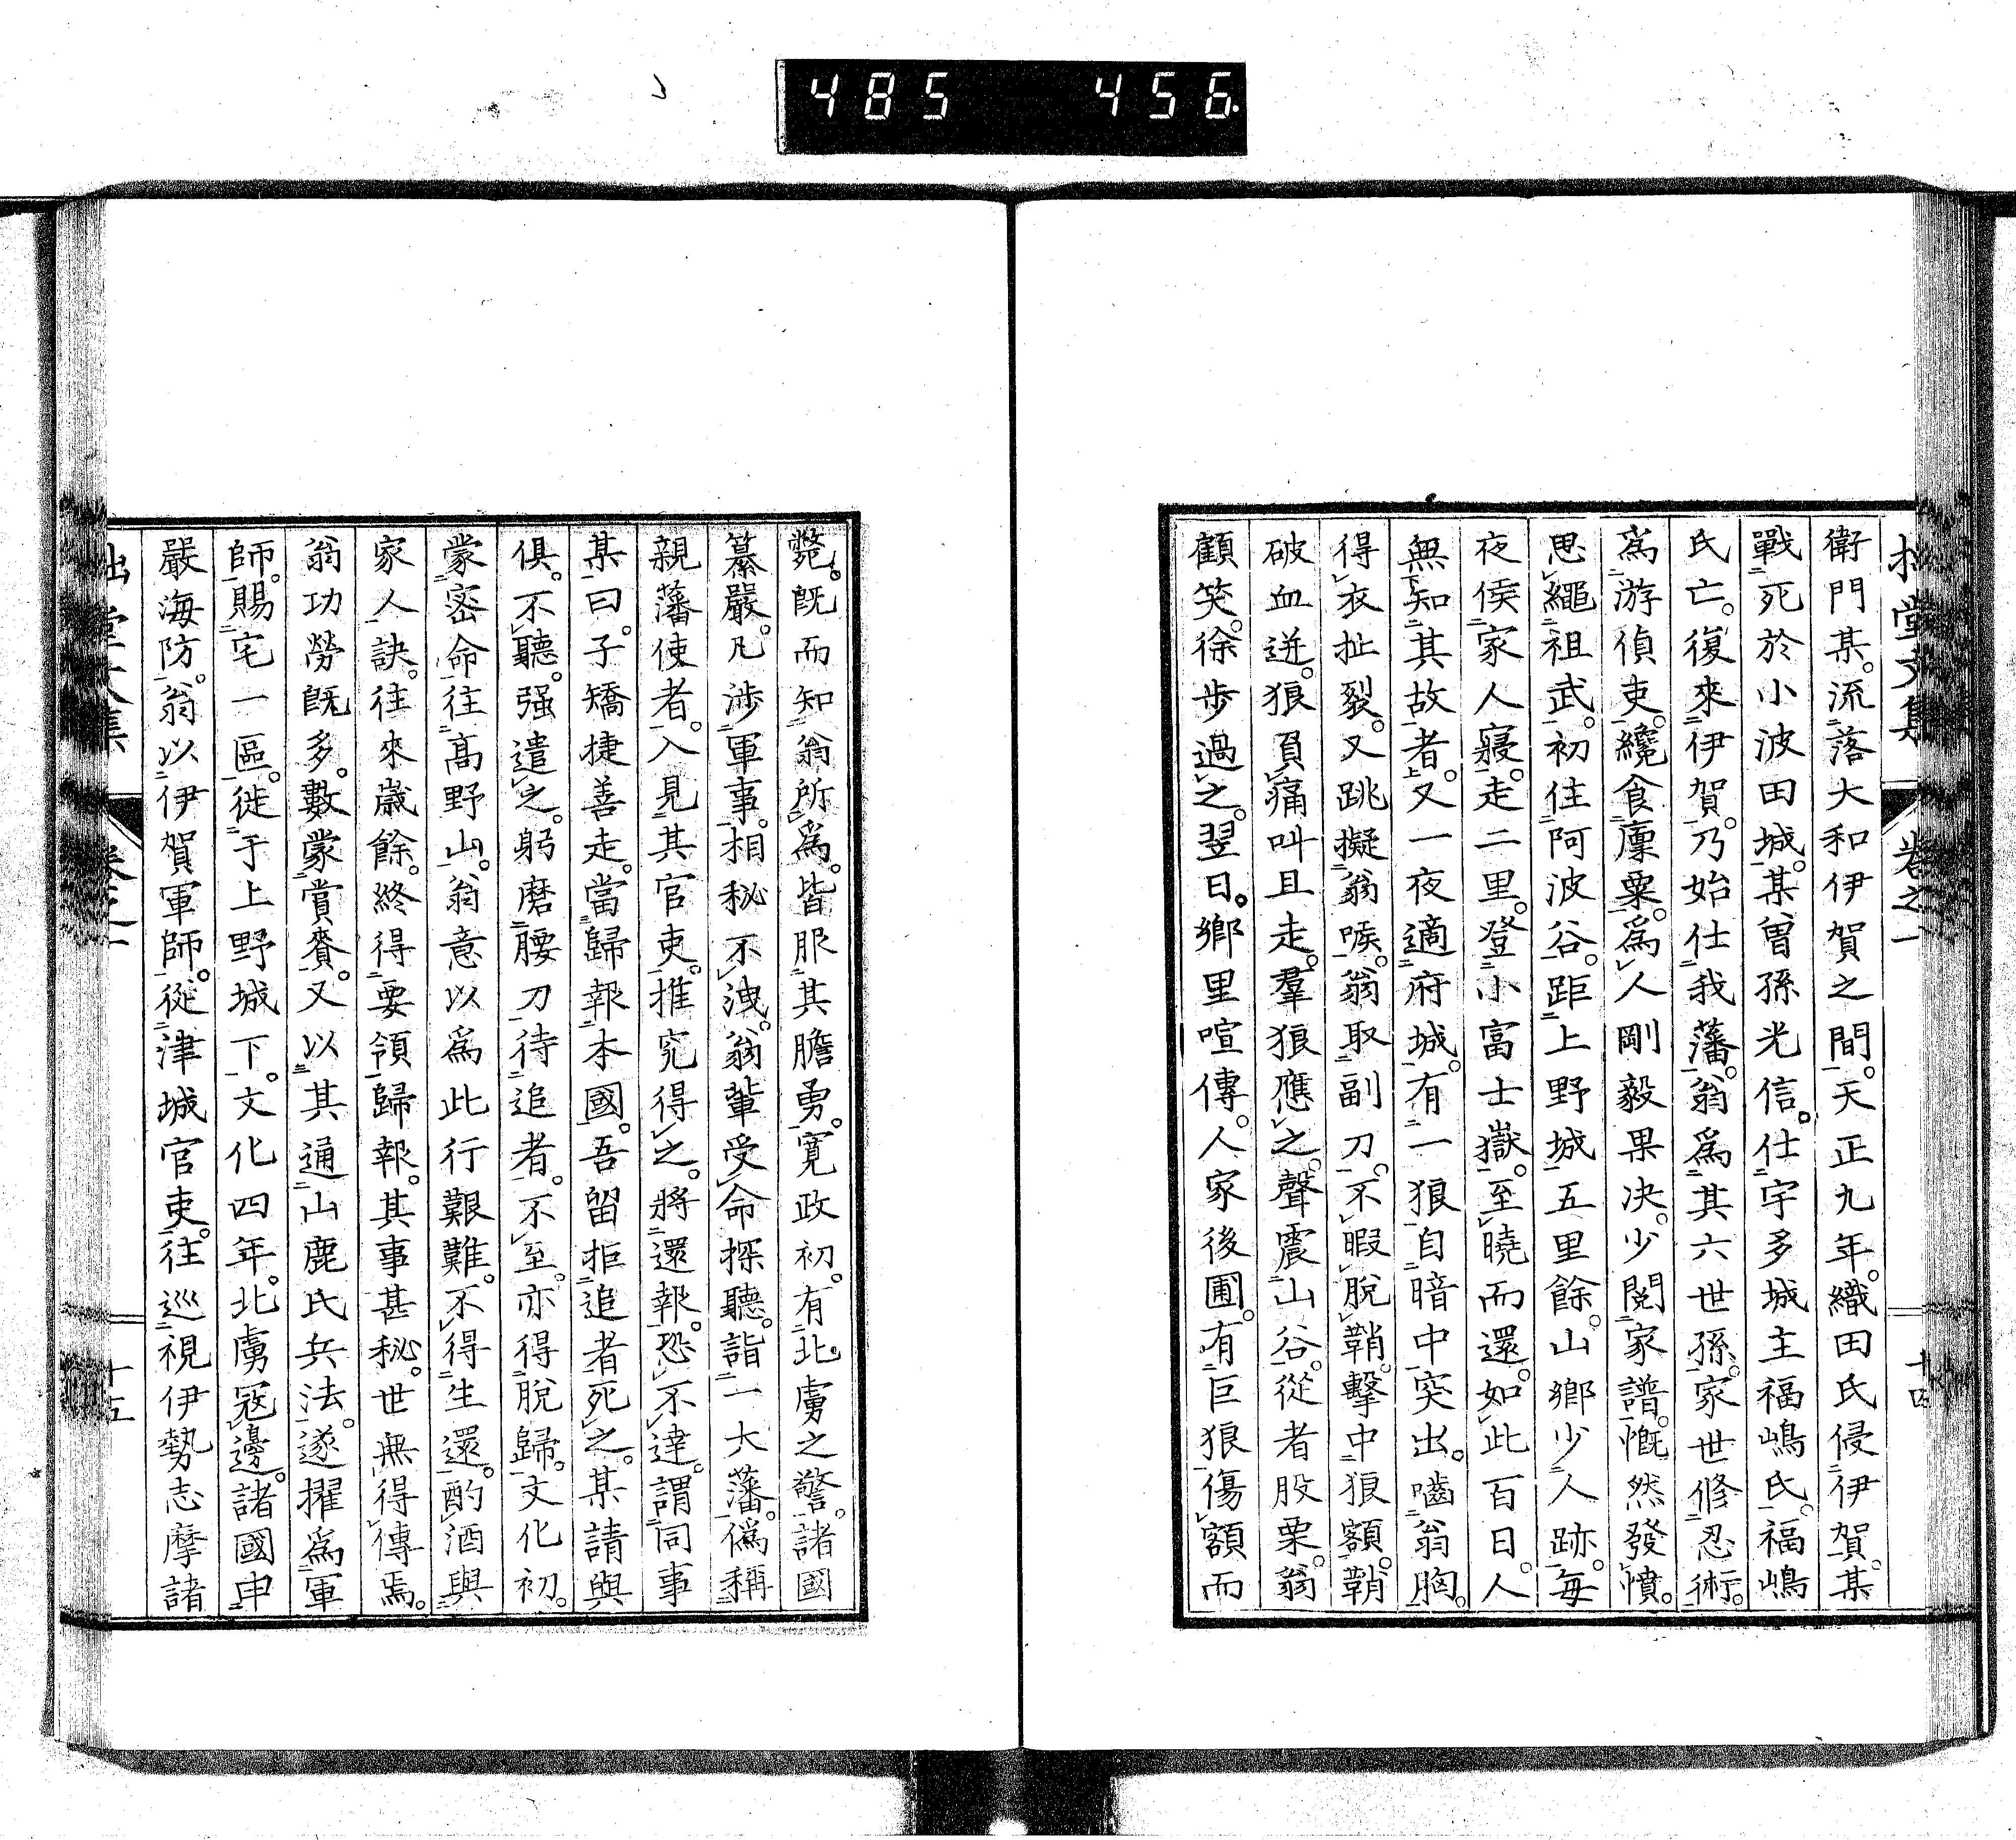 485 456
衛門某。流落大和伊賀之間。天正九年。織田氏侵伊賀。某
戰死於小波田城。某曾孫光信。仕宇多城主福嶋氏。福嶋
氏亡。復來伊賀。乃始仕我藩。翁爲其六世孫。家世修忍術。
爲游偵吏。纔食廩粟。爲人剛毅果决。少閱家譜。慨然發憤。
思繩祖武。初住阿波谷。距上野城五里餘。山鄉少人跡。每
夜俟家人寢。走二里。登小富士嶽。至曉而還。如此百日。人
無知其故者。又一夜適府城。有一狼自暗中突出。嚙翁胸。
得衣扯裂。又跳擬翁喉。翁取副刀。不暇脫鞘。擊中狼額。鞘
破血迸。狼負痛叫且走。羣狼應之。聲震山谷。從者股栗。翁
顧笑。徐步過之。翌日。鄉里喧傳。人家後圃。有巨狼傷額而
斃。旣而知翁所爲。皆服其膽勇。寬政初。有北虜之警。諸國
纂嚴。凡涉軍事。相秘不洩。翁輩受命探聽。詣一大藩。僞稱
親藩使者。入見其官吏。推究得之。將還報。恐不達。謂同事
某曰。子矯捷善走。當歸報本國。吾留拒追者死之。某請與
俱。不聽。强遣之。躬磨腰刀待追者。不至。亦得脫歸。文化初。
蒙密命往高野山。翁意以爲此行艱難。不得生還。酌酒與
家人訣。往來歲餘。終得要領歸報。其事甚秘。世無得傳焉。
翁功勞旣多。數蒙賞賚。又以其通山鹿氏兵法。遂擢爲軍
師。賜宅一區。徙于上野城下。文化四年。北虜寇邊。諸國申
嚴海防。翁以伊賀軍師。從津城官吏。往巡視伊勢志摩諸